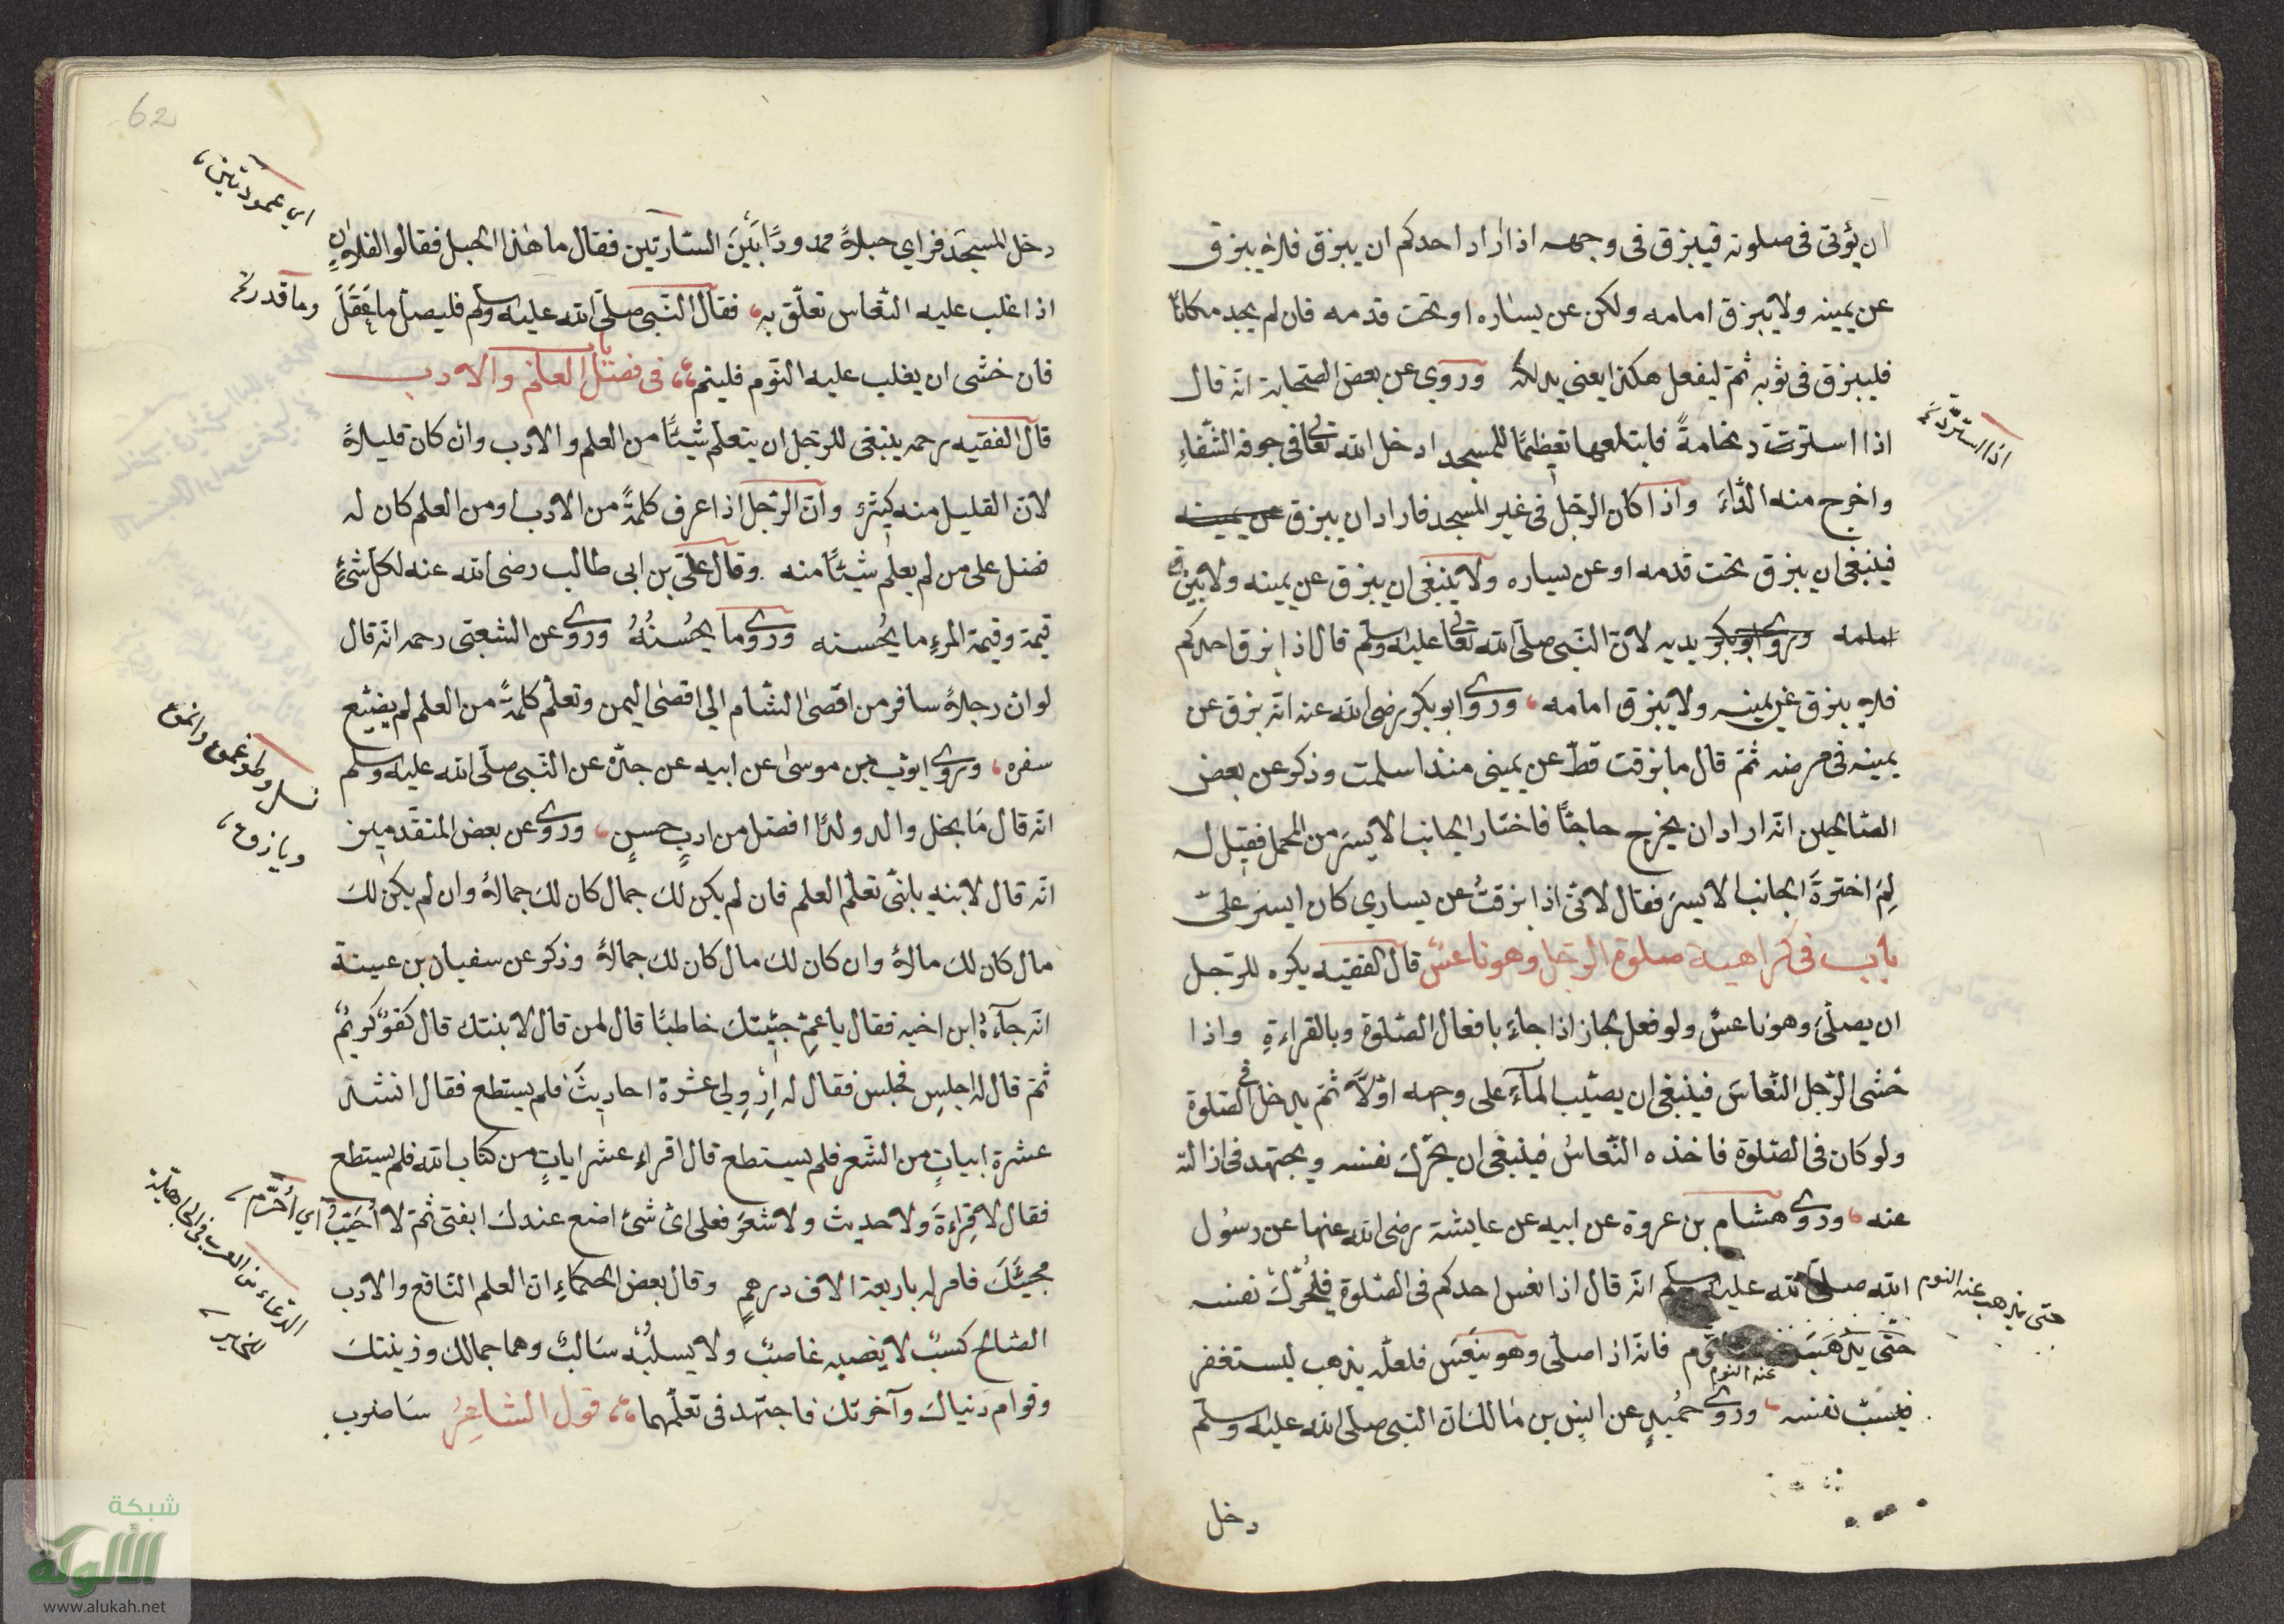 ان يؤتى فى صلوته فيبزق فى وجهه اذا اراد احدكم ان يبزق فلا يبزق
عن يمينه ولا يبزق امامه ولكن عن يساره او تحت قدمه فان لم يجد مكانًا
فليبزق فى ثوبه ثمّ ليفعل هكذا يعنى يدلكه وروى عن بعض الصّحابة انّه قال
اذا استرت دنخامةً فابتلعها تعظيمًا للمسجد ادخل الله تعالى فى جوفه الشّفاءِ
اذا استردّت
واخرج منه الدّاءَ واذا كان الرّجل فى غير المسجد فاراد ان يبزق عن يمينه
فينبغى ان يبزق تحت قدمه او عن يساره ولا ينبغى ان يبزق عن يمينه ولا يبزق
امامه وروى ابو بكر يديه لانّ النّبى صلّى الله تعالى عليه وسلّم قال اذا بزق احدكم
فلا يبزق عن يمينه ولا يبزق امامه وروى ابو بكر رضى الله عنه انّه بزق عن
يمينه فى مرضه ثمّ قال ما بزقت قطّ عن يمينى منذ اسلمت وذكر عن بعض
الصّالحين انّه اراد ان يخرج حاجًّا فاختار الجانب الايسر من المحمل فقيل له
لِمَ اخترةَ الجانب الايسر فقال لانّى اذا بزقتُ عن يسارى كان ايسر علىّ
باب فى كراهية صلوة الرّجل وهو ناعسٌ قال الفقيه يكره للرّجل
ان يصلّىَ وهو ناعسٌ ولو فعل لجاز اذا جاءَ بافعال الصّلوة وبالقراءةِ واذا
خشى الرّجل النّعاسَ فينبغى ان يصبّب المآءَ على وجهه اوّلاً ثمّ يدخل فى الصّلوة
ولو كان فى الصّلوة فاخذه النّعاسُ فينبغى ان يحرّك نفسه ويجتهد فى ازالته
عنه وروى هشام بن عروة عن ابيه عن عايشة رضى الله عنها عن رسول
الله صلّى الله عليه وسلّم انّه قال اذا نعس احدكم فى الصّلوة فليُحرّك نفسه
حتى يذهب عنه النوم
حتّى يذهَبَ عنه النوم فانّه اذا صلّى وهو ينعَس فلعلّه يذهب ليستغفر
فيسُبّ نفسه وروى حُميدٍ عن انس بن مالك انّ النبى صلى الله عليه وسلّم
دخل
62
دخل المسجد فرأى حبلاً ممدودًا بَيْنَ السّارتين فقال ما هذا الحبل فقالوا الفلانٍ
اى عمودتين
اذا غلب عليه النّعاس تعلّق به فقال النّبى صلّى الله عليه وسلّم فليصلّ ما عَقَلَ
وما قدر
فان خشى ان يغلب عليه النّوم فلينم باب فى فضل العلم والادب
قال الفقيه رحمه ينبغى للرّجل ان يتعلّم شيئًا من العلم والادب وان كان قليلاً
لانّ القليل منه كثيرٌ وانّ الرّجل اذا عرف كلمةً من الادب او من العلم كان له
فضل على من لم يعلم شيئًا منه وقال علىّ بن ابى طالب رضى الله عنه لكلّ شئٍ
قيمة وقيمة المرءِ ما يحُسنه وروى وما يحُسنُهُ وروى عن الشعبى رحمه انّه قال
لو انّ رجلاً سافر من اقصى الشّام الى اقصى اليمن وتعلّم كلمةً من العلم لم يضيّع
سفره وروى ايوب بن موسى عن ابيه عن جدّه عن النّبى صلّى الله عليه وسلم
انّه قال مَا نحل والد ولدًا افضل من ادبٍ حسنٍ وروى عن بعض المتقدّمين
انّه قال لابنه يا بنىّ تعلّم العلم فان لم يكن لك جمال كان لك جمالاً وان لم يكن لك
مال كان لك مالاً وان كان لك مال كان لك جمالاً وذكر عن سفيان بن عيينة
انّه جآءهُ ابن اخيه فقال يا عمِّ جئيتك خاطبًا قال لمن قال لابنتك قال كفوٌ كريمٌ
ثمّ قال له اجلِس فجلس فقال له اِرْوِ لى عشرة احاديثَ فلم يستطع فقال انشد
عشرة ابياتٍ من الشّعر فلم يستطع قال اقراء عشر اياتٍ من كتاب الله فلم يستطع
فقال لا قراءةَ ولا حديث ولا شعرَ فعلى اىّ شئ اضع عندك ابنتى ثمّ لا اُخَيّبُ
اى اُحَرّم
مجيئَكَ فامر له باربعة الاف درهمٍ وقال بعض الحكماءِ انّ العلم النّافع والادب
الصّالح كسبٌ لا يغصبه غاصبٌ ولا يسلبُه سَالبٌ وهما جمالك وزينتك
وقوام دنياكَ وآخرتك فاجتهد فى تعلّمهما قول الشاعِرُ سَاضرب
شبكة
الألوكة
www.alukah.net